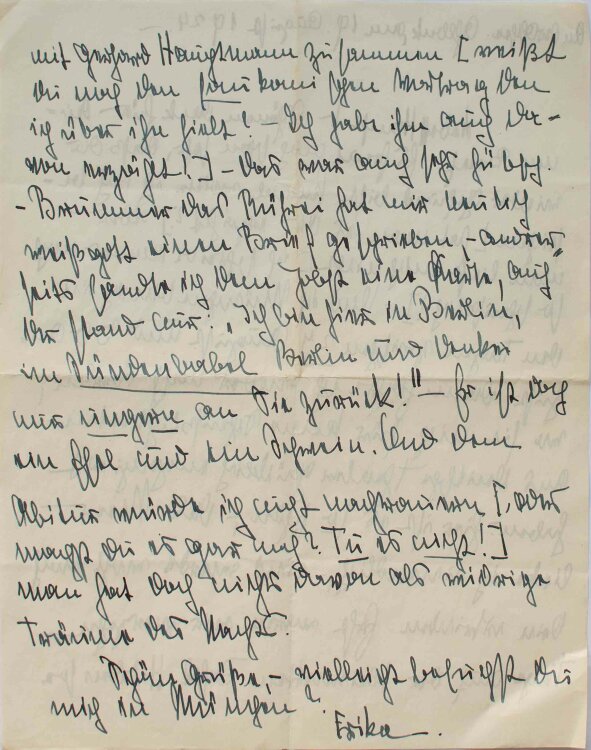 mit Gerhard Hauptmann zusammen [weißt
du noch den faukanischen Vortrag den
ich über ihn hielt! – Ich habe ihm auch da-
von erzählt!] – das war auch sehr hübsch.
– Brummer das Rührei hat mir neulich
weißgott einen Brief geschrieben, – andrer-
seits sandte ich dem Jobst eine Karte, auf
der stand nur: „Ich bin hier in Berlin,
im Sündenbabel Berlin und denke
nur ungern an Sie zurück!" – Er ist doch
ein Esel und ein Schwein. Und dem
Abitur würde ich nicht nachtrauern [, oder
machst du es gar noch? Tu es nicht!]
man hat doch nichts davon als widrige
Träume des Nachts.
Schöne Grüße, – vielleicht besuchst du
mich in München?
Erika.